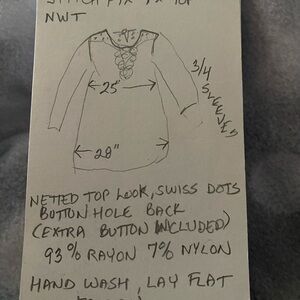 NWT
25"
3/4 SLEEVES
28"
NETTED TOP LOOK, SWISS DOTS
BUTTON HOLE BACK
(EXTRA BUTTON INCLUDED)
93% RAYON 7% NYLON
HAND WASH, LAY FLAT